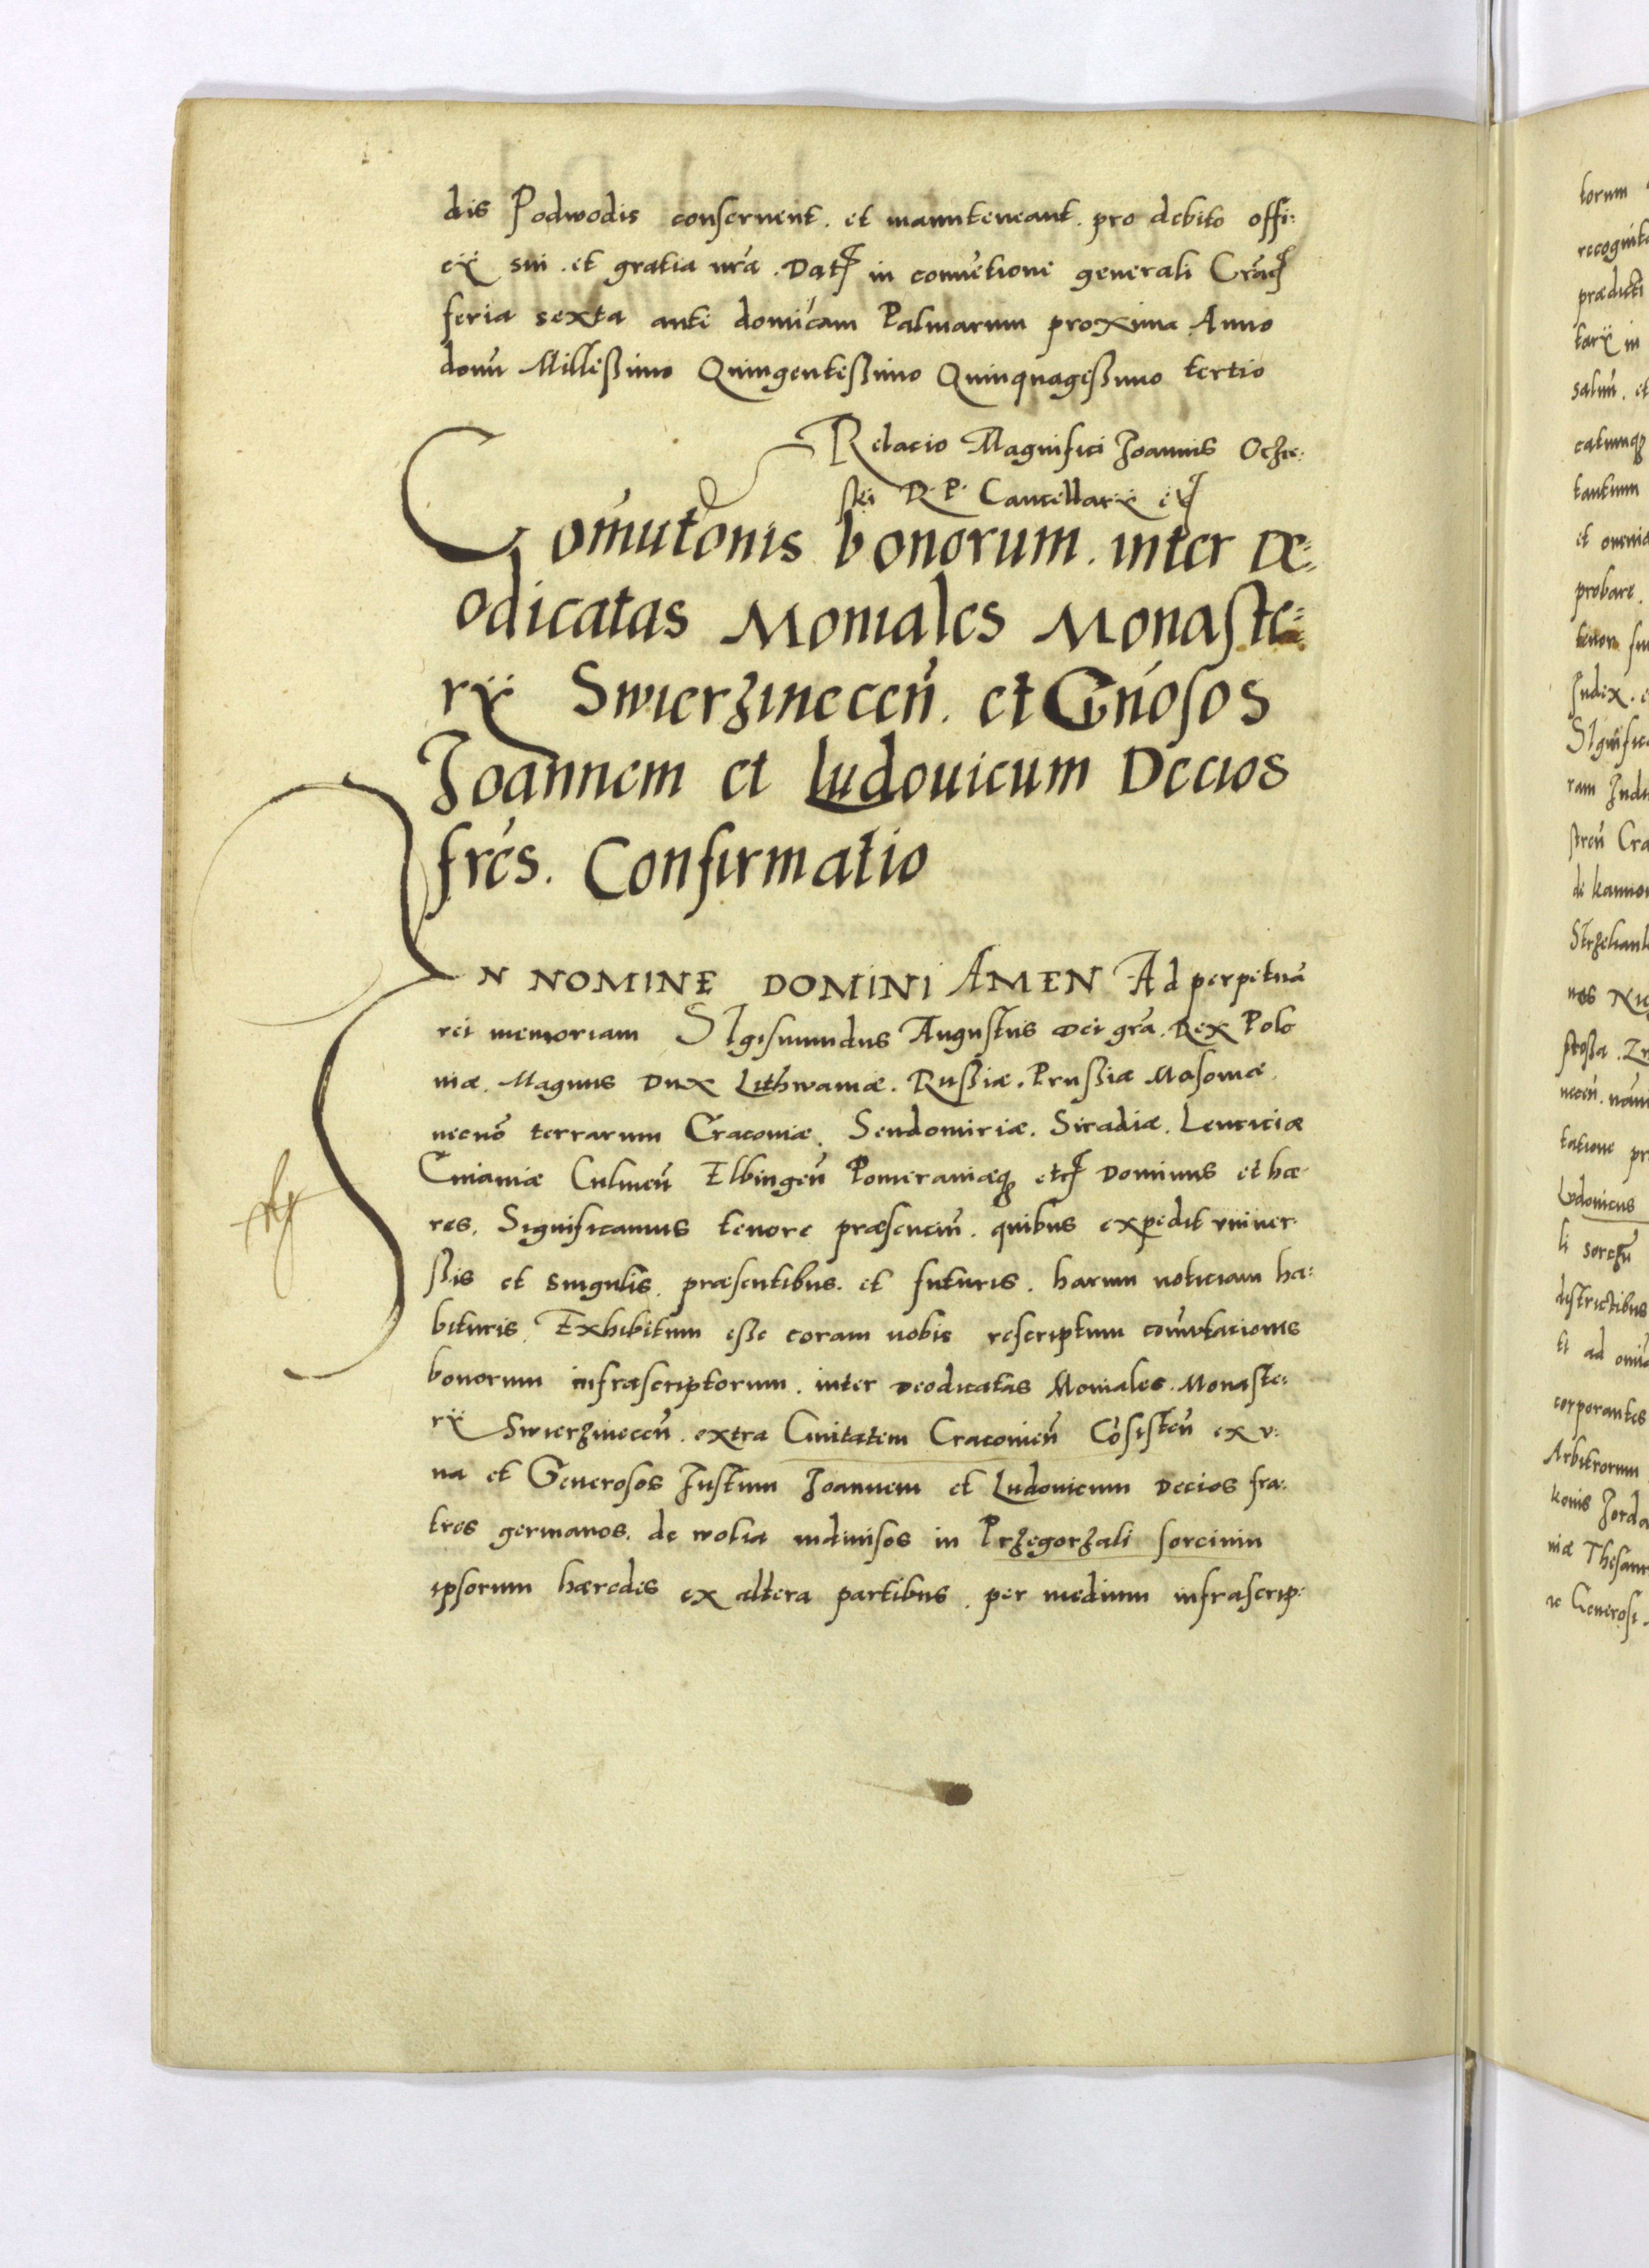 dis Podwodis conseruent. et manuteneant. pro debito offi:
cÿ sui. et gratia nr̃a. Datꝭ in conuẽtione generali Cracꝭ
feria sexta ante domĩcam Palmarum proxima Anno
domĩ Millesßimo Quingentesßimo Quinquagesßimo tertio
Relacio Magnifici Joannis Ocze:
ski R. P. Cancellarÿ etꝭ
Com̃utõnis bonorum. inter De:
odicatas Moniales Monaste:
rÿ Swierzineceñ. et Gñosos
Joannem et Ludouicum Decios
fr̃es. Confirmatio
IN NOMINE DOMINI AMEN Ad perpetuã
rei memoriam SIgismundus Augustus Dei gr̃a. Rex Polo
niæ. Magnus Dux Lithwaniæ. Rußiæ. Prußiæ Masoniæ.
necnõ terrarum Cracouiæ. Sendomiriæ. Siradiæ. Lenciciæ
Cuiauiæ Culmeñ Elbingeñ Pomeraniæq̃ꝫ etcꝭ Dominus et hæ
res. Significamus tenore præsenciũ. quibus expedit vniuer
sis et singulis. præsentibus. et futuris. harum noticiam ha:
bituris. Exhibitum eße coram nobis rescriptum com̃utacionis
bonorum infrascriptorum. inter Deodicatas Moniales. Monaste:
rÿ Swierzineceñ. extra Ciuitatem Cracouieñ Cõsisteñ ex v:
na et Generosos Justum Joannem et Ludouicum Decios fra:
tres germanos. de wolia indiuisos in Przegorzali sorcium
ipsorum hæredes ex altera partibus. per medium infrascrip:
torum
recognit
prædicti
tarÿ in
saluũ. et
catumq̃ꝫ
tantum
et omnia
probare.
tenor su
Judex. e
SIgnific
ram Judi
streñ Cra
de
nos Nie
neceñ. nom
tatione pr
Ludouicus
districtibus
ti ad omĩa
corporantes
Arbitrorum
konis Jorda
niæ Thesaur
re Generosi.